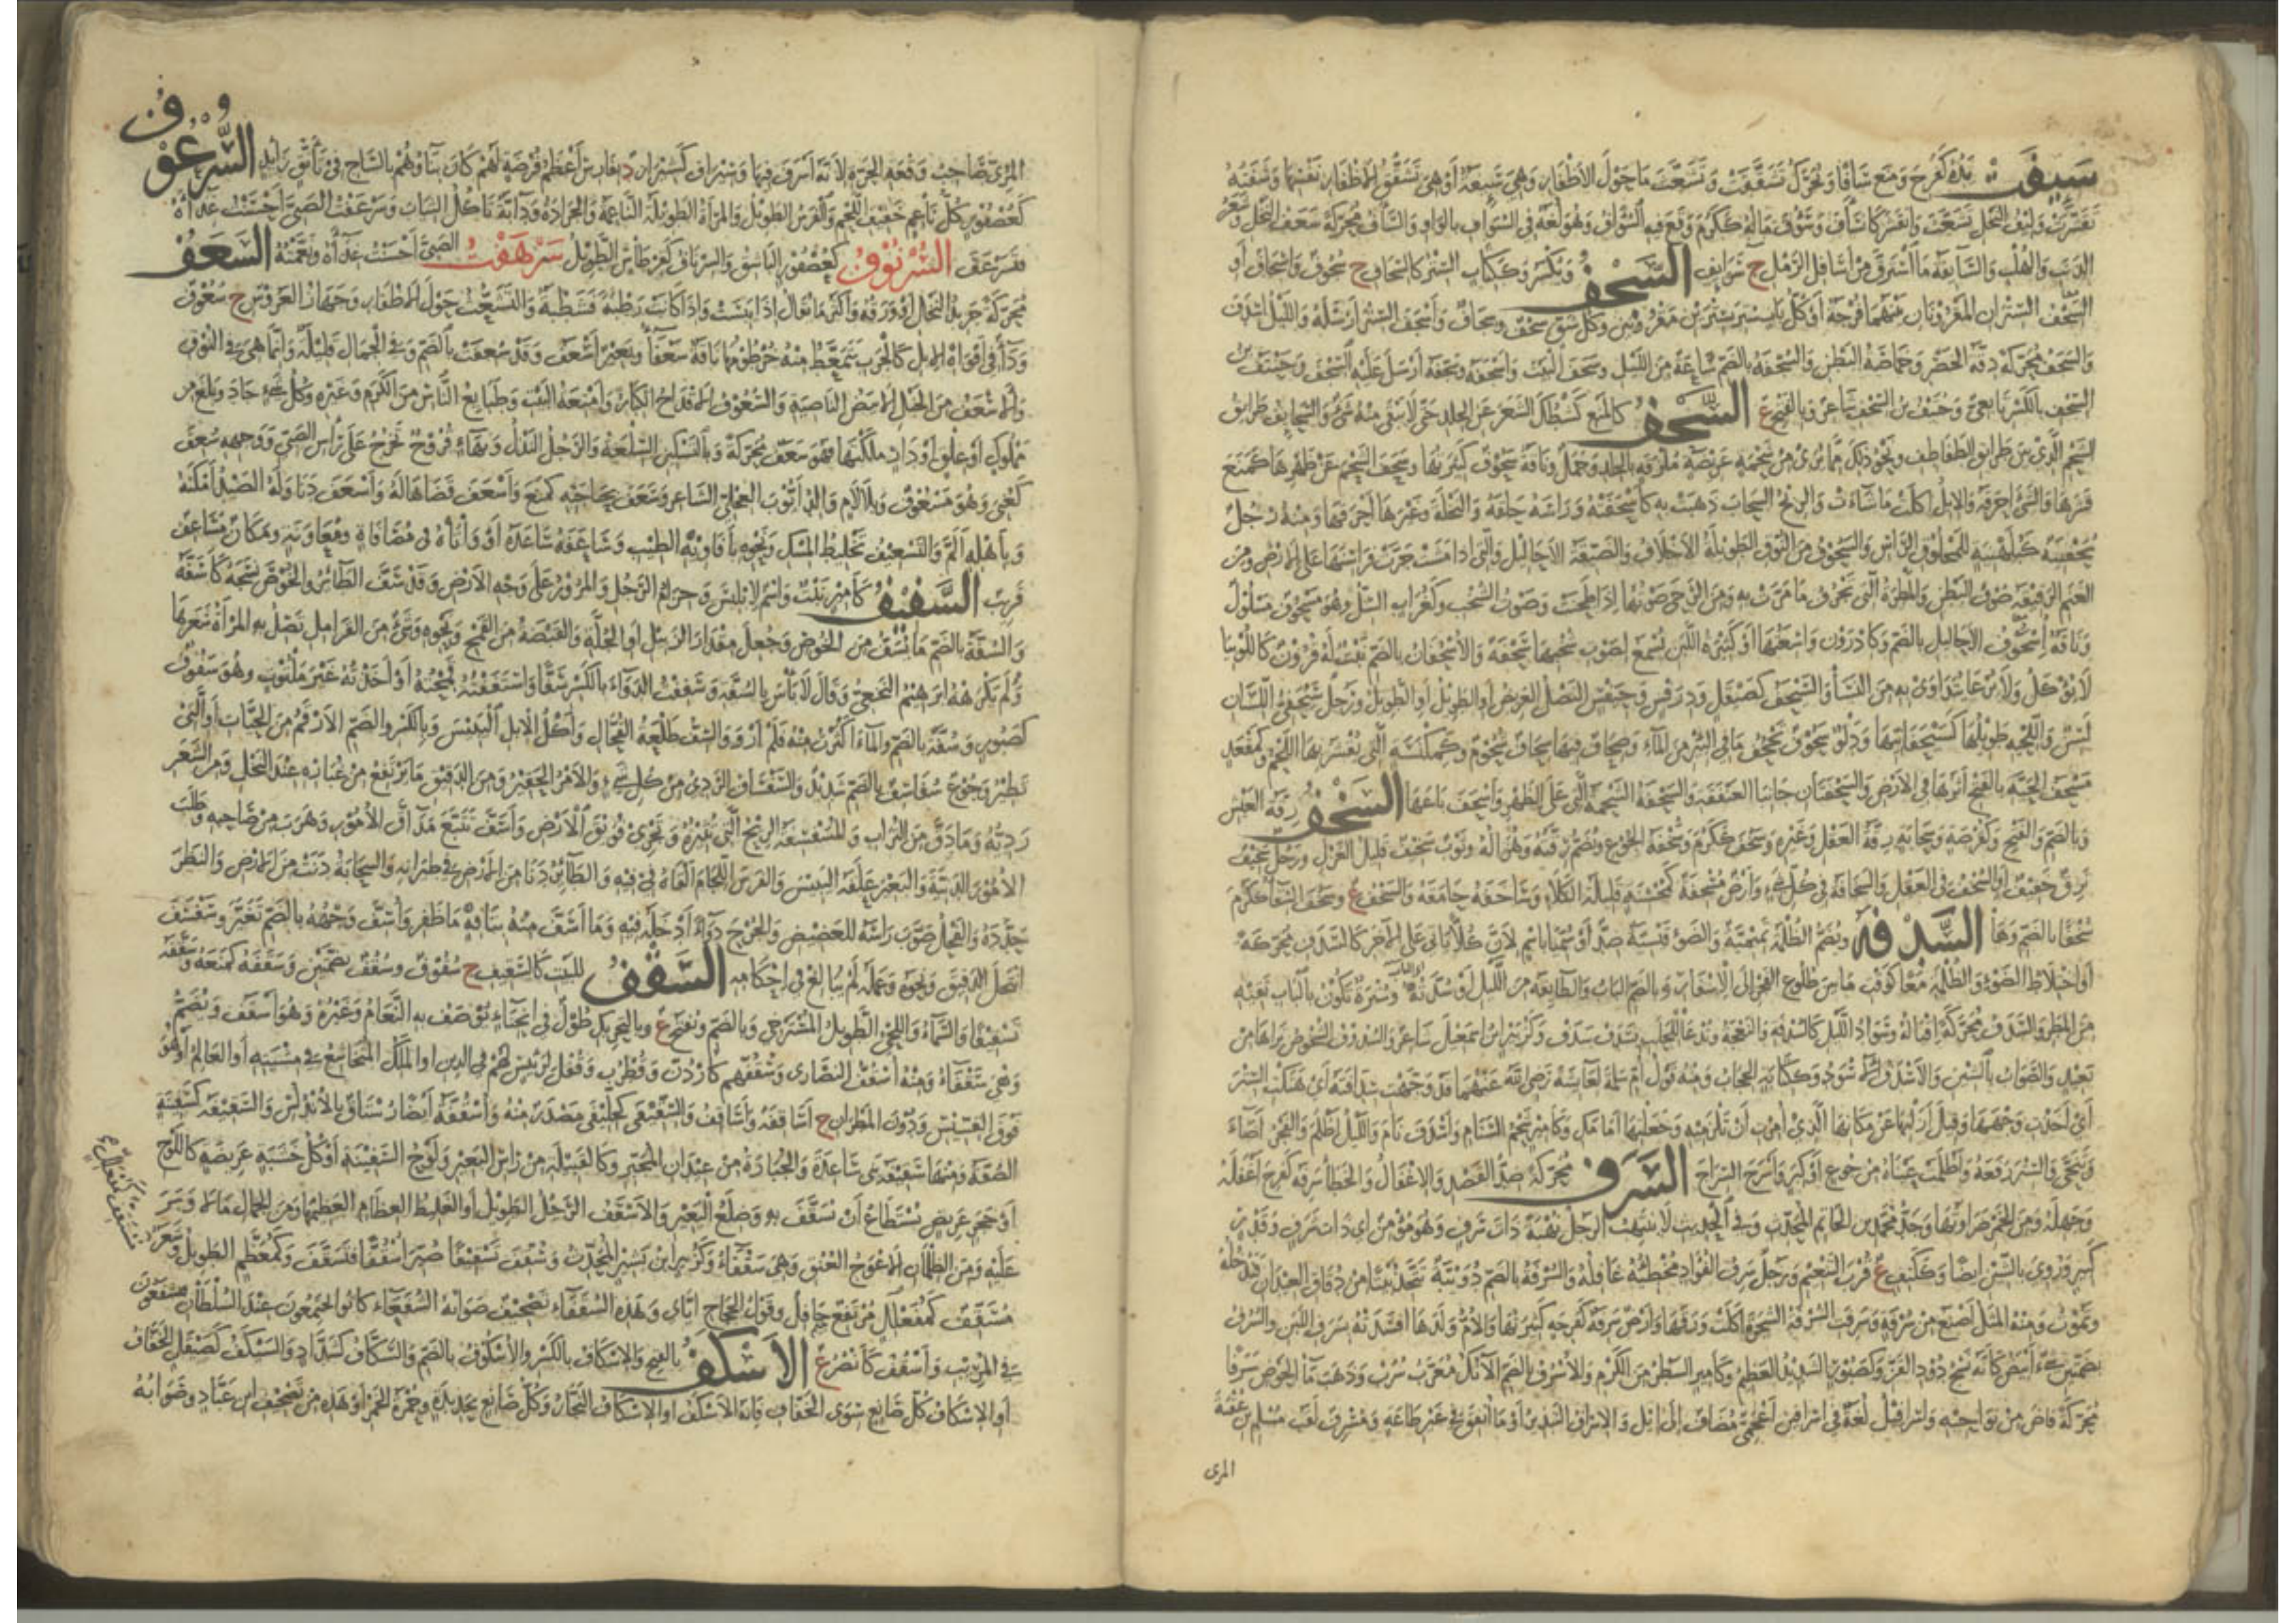 سَئِفَتْ يَدُهُ كَفَرِحَ وَمَنَعَ سَأَفًا وَيُحَرَّكُ تَشَقَّقَتْ وَتَشَعَّثَ مَا حَوْلَ الأَظْفَارِ وَهِيَ سَئِفَةٌ أَوْ هِيَ تَشَقُّقُ الأَظْفَارِ نَفْسِهَا وَشَفَتُهُ
تَقَشَّرَتْ وَلِيفُ النَّخْلِ تَشَعَّثَ وَانْقَشَرَ كَانْسَأَفَ وَسَؤُفَ مَالُهُ كَكَرُمَ وَقَعَ فِيهِ السُّوَافُ وَهُوَ لُغَةٌ فِي السُّوَافِ بِالوَاوِ وَالسَّأَفُ مُحَرَّكَةً سَعَفُ النَّخْلِ وَشَعَرُ
الذَّنَبِ وَالهُلْبِ وَالسَّائِفَةُ مَا اسْتَرَقَّ مِنْ أَسَافِلِ الرَّمْلِ ج سَوَائِفُ السَّجْفُ وَيُكْسَرُ وَكَكِتَابٍ السِّتْرُ كَالسِّجَافِ ج سُجُوفٌ وَأَسْجَافٌ أَوِ
السَّجْفُ السِّتْرَانِ المَقْرُونَانِ بَيْنَهُمَا فُرْجَةٌ أَوْ كُلُّ بَابٍ سُتِرَ بِسِتْرَيْنِ مَقْرُونَيْنِ وَكُلُّ شِقٍّ سَجْفٌ وَسِجَافٌ وَأَسْجَفَ السِّتْرَ أَرْسَلَهُ وَاللَّيْلُ أَسْدَفَ
وَالسَّجَفُ مُحَرَّكَةً دِقَّةُ الخَصْرِ وَخَمَاصَةُ البَطْنِ وَالسُّجْفَةُ بِالضَّمِّ سَاعَةٌ مِنَ اللَّيْلِ وَسَجَفَ البَيْتَ وَأَسْجَفَهُ وَسَجَّفَهُ أَرْسَلَ عَلَيْهِ السَّجْفَ وَحُنَيْفُ بْنُ
السِّجْفِ بِالكَسْرِ تَابِعِيٌّ وَحُنَيْفُ بْنُ السَّجْفِ شَاعِرٌ وَبِالفَتْحِ ع السَّحْفُ كَالمَنْعِ كَشْطُكَ الشَّعَرَ عَنِ الجِلْدِ حَتَّى لَا يَبْقَى مِنْهُ شَيْءٌ وَالسَّحَائِفُ طَرَائِقُ
الشَّحْمِ الَّتِي بَيْنَ طَرَائِقِ الطَّفَاطِفِ وَنَحْوُ ذَلِكَ مِمَّا يُرَى مِنْ شَحْمَةٍ عَرِيضَةٍ مُلْزَقَةٍ بِالجِلْدِ وَجَمَلٌ وَنَاقَةٌ سَحُوفٌ كَثِيرَتُهَا وَسَحَفَ الشَّحْمَ عَنْ ظَهْرِهَا كَمَنَعَ
قَشَرَهَا وَالشَّيْءَ أَحْرَقَهُ وَالإِبِلُ أَكَلَتْ مَا شَاءَتْ وَالرِّيحُ السَّحَابَ ذَهَبَتْ بِهِ كَأَسْحَفَتْهُ وَرَأْسَهُ حَلَقَهُ وَالنَّخْلَةَ وَغَيْرَهَا أَحْرَقَهَا وَمِنْهُ رَجُلٌ
سُحَفْنِيَةٌ كَبُلَهْنِيَةٍ لِلْمَحْلُوقِ الرَّأْسِ وَالسَّحُوفُ مِنَ النُّوقِ الطَّوِيلَةُ الأَخْلَافِ وَالضَّيِّقَةُ الأَحَالِيلِ وَالَّتِي إِذَا مَشَتْ جَرَّتْ فَرَاسِنَهَا عَلَى الأَرْضِ وَمِنَ
الغَنَمِ الرَّقِيقَةُ صُوفِ البَطْنِ وَالمَطْرَةُ الَّتِي تَجْرُفُ مَا مَرَّتْ بِهِ وَمِنَ الرَّحَى صَوْتُهَا إِذَا طَحَنَتْ وَصَوْتُ الشَّخْبِ وَكَغُرَابٍ السِّلُّ وَهُوَ مَسْحُوفٌ مَسْلُولٌ
وَنَاقَةٌ أُسْحُوفُ الأَحَالِيلِ بِالضَّمِّ وَكَإِدْرَوْنٍ وَاسِعَتُهَا أَوْ كَثِيرَةُ اللَّبَنِ يُسْمَعُ لِصَوْتِ شَخْبِهَا سَحْفَةٌ وَالأُسْحُفَانُ بِالضَّمِّ نَبْتٌ لَهُ قُرُونٌ كَاللُّوبِيَا
لَا يُؤْكَلُ وَلَا يُرْعَى يُتَدَاوَى بِهِ مِنَ النَّسَا وَالسَّيْحَفُ كَصَيْقَلٍ وَدِرَفْسٍ وَحَيَفْسٍ النَّصْلُ العَرِيضُ أَوِ الطَّوِيلُ وَرَجُلٌ سَيْحَفِيُّ اللِّسَانِ
لَسِنٌ وَاللِّحْيَةِ طَوِيلُهَا كَسَيْحَفَانِيِّهَا وَدَلْوٌ سَحُوفٌ تَجْحَفُ مَا فِي البِئْرِ مِنَ المَاءِ وَصِحَافٌ فِيهَا سِحَافٌ شُحُومٌ وَكَمِكْنَسَةٍ الَّتِي يُقْشَرُ بِهَا اللَّحْمُ وَكَمَقْعَدٍ
مَسْحَفُ الحَيَّةِ بِالفَتْحِ أَثَرُهَا فِي الأَرْضِ وَالسَّحْفَتَانِ جَانِبَا العَنْفَقَةِ وَالسَّحْفَةُ الشَّحْمَةُ الَّتِي عَلَى الظَّهْرِ وَأَسْحَفَ بَاعَهَا السُّخْفُ رِقَّةُ العَيْشِ
وَبِالضَّمِّ وَالفَتْحِ وَكَقُرْصَةٍ وَسَحَابَةٍ رِقَّةُ العَقْلِ وَغَيْرِهِ وَسَخُفَ كَكَرُمَ وَسَخْفَةُ الجُوعِ وَتُضَمُّ رِقَّتُهُ وَهُزَالُهُ وَثَوْبٌ سَخِيفٌ قَلِيلُ الغَزْلِ وَرَجُلٌ سَخِيفٌ
نَزِقٌ خَفِيفٌ أَوِ السُّخْفُ فِي العَقْلِ وَالسَّخَافَةُ فِي كُلِّ شَيْءٍ وَأَرْضٌ مُسْخِفَةٌ كَمُحْسِنَةٍ قَلِيلَةُ الكَلَإِ وَسَاخَفَهُ حَامَقَهُ وَالسُّخْفُ ع وَسَخُفَ السِّقَاءُ كَكَرُمَ
سُخْفًا بِالضَّمِّ وَهَى السُّدْفَةُ وَيُضَمُّ الظُّلْمَةُ تَمِيمِيَّةٌ وَالضَّوْءُ قَيْسِيَّةٌ ضِدٌّ أَوْ سُمِّيَا بِاسْمٍ لِأَنَّ كُلًّا يَأْتِي عَلَى الآخَرِ كَالسَّدَفِ مُحَرَّكَةً
أَوِ اخْتِلَاطُ الضَّوْءِ وَالظُّلْمَةِ مَعًا كَوَقْتِ مَا بَيْنَ طُلُوعِ الفَجْرِ إِلَى الإِسْفَارِ وَبِالضَّمِّ البَابُ وَالطَّائِفَةُ مِنَ اللَّيْلِ أَوْ سُدَّتُهُ وَسُتْرَةٌ تَكُونُ بِالبَابِ تَقِيهِ
مِنَ المَطَرِ وَالسَّدَفُ مُحَرَّكَةً إِقْبَالُهُ وَسَوَادُ اللَّيْلِ كَالسُّدْفَةِ وَالنَّعْجَةُ وَتُدْعَى لِلْحَلَبِ بِسَدَفْ سَدَفْ وَكَزُبَيْرٍ ابْنُ إِسْمَعِيلَ شَاعِرٌ وَالسُّدُوفُ الشُّخُوصُ تَرَاهَا مِنْ
بَعِيدٍ وَالصَّوَابُ بِالشِّينِ وَالأَسْدَفُ الأَسْوَدُ وَكَكِتَابَةٍ الحِجَابُ وَمِنْهُ قَوْلُ أُمِّ سَلَمَةَ لِعَائِشَةَ رَضِيَ اللهُ عَنْهُمَا قَدْ وَجَّهْتِ سِدَافَتَهُ أَيْ هَتَكْتِ السِّتْرَ
أَيْ أَخَذْتِ وَجْهَهَا وَقِيلَ أَزَلْتِهَا عَنْ مَكَانِهَا الَّذِي أُمِرْتِ أَنْ تَلْزَمِيهِ وَجَعَلْتِهَا أَمَامَكِ وَكَأَمِيرٍ شَحْمُ السَّنَامِ وَأَسْدَفَ نَامَ وَاللَّيْلُ أَظْلَمَ وَالفَجْرُ أَضَاءَ
وَتَنَحَّى وَالسِّتْرَ رَفَعَهُ وَأَظْلَمَتْ عَيْنَاهُ مِنْ جُوعٍ أَوْ كِبَرٍ وَأَسْرَجَ السِّرَاجَ السَّرَفُ مُحَرَّكَةً ضِدُّ القَصْدِ وَالإِغْفَالُ وَالخَطَأُ سَرِفَهُ كَفَرِحَ أَغْفَلَهُ
وَجَهِلَهُ وَمِنَ الخَمْرِ ضَرَاوَتُهَا وَجَدُّ مُحَمَّدِ بْنِ الحَاتِمِ المُحَدِّثِ وَفِي الحَدِيثِ لَا يَنْتَهِبُ الرَّجُلُ نُهْبَةً ذَاتَ سَرَفٍ وَهُوَ مُؤْمِنٌ أَيْ ذَاتَ شَرَفٍ وَقَدْرٍ
كَبِيرٍ وَرُوِيَ بِالشِّينِ أَيْضًا وَكَكَتِفٍ ع قُرْبَ التَّنْعِيمِ وَرَجُلٌ سَرِفُ الفُؤَادِ مُخْطِئُهُ غَافِلُهُ وَالسُّرْفَةُ بِالضَّمِّ دُوَيْبَّةٌ تَتَّخِذُ بَيْتًا مِنْ دِقَاقِ العِيدَانِ فَتَدْخُلُهُ
وَتَمُوتُ وَمِنْهُ المَثَلُ أَصْنَعُ مِنْ سُرْفَةٍ وَسَرَفَتِ السُّرْفَةُ الشَّجَرَةَ أَكَلَتْ وَرَقَهَا وَأَرْضٌ سَرِفَةٌ كَفَرِحَةٍ كَثِيرَتُهَا وَالأُمُّ وَلَدَهَا أَفْسَدَتْهُ بِسَرَفِ اللَّبَنِ وَالسُّرُفُ
بِضَمَّتَيْنِ شَيْءٌ أَبْيَضُ كَأَنَّهُ نَسْجُ دُودِ القَزِّ وَكَصَبُورٍ الشَّدِيدُ العَظِيمُ وَكَأَمِيرٍ السَّطْرُ مِنَ الكَرْمِ وَالأُسْرُفُ بِالضَّمِّ الآنُكُ مُعَرَّبُ سُرُبْ وَذَهَبَ مَاءُ الحَوْضِ سَرَفًا
مُحَرَّكَةً فَاضَ مِنْ نَوَاحِيهِ وَإِسْرَافِيلُ لُغَةٌ فِي إِسْرَافِينَ أَعْجَمِيٌّ مُضَافٌ إِلَى إِيلَ وَالإِسْرَافُ التَّبْذِيرُ أَوْ مَا أُنْفِقَ فِي غَيْرِ طَاعَةٍ وَمُسْرِفٌ لَقَبُ مُسْلِمِ بْنِ عُقْبَةَ
المرى
المُرِّيِّ صَاحِبِ وَقْعَةِ الحَرَّةِ لِأَنَّهُ أَسْرَفَ فِيهَا وَسِيرَافُ كَشِيرَازَ د بِفَارِسَ أَعْظَمُ فُرْضَةٍ لَهُمْ كَانَ بِنَاؤُهُمْ بِالسَّاجِ فِي تَأَنُّقٍ زَائِدٍ السُّرْعُوفُ
كَعُصْفُورٍ كُلُّ نَاعِمٍ خَفِيفِ اللَّحْمِ وَالفَرَسُ الطَّوِيلُ وَالمَرْأَةُ الطَّوِيلَةُ النَّاعِمَةُ وَالجَرَادَةُ وَدَابَّةٌ تَأْكُلُ الثِّيَابَ وَسَرْعَفْتُ الصَّبِيَّ أَحْسَنْتُ غِذَاءَهُ
فَتَسَرْعَفَ السُّرْنُوفُ كَعُصْفُورٍ البَاشَقُ وَالسِّرْنَافُ كَقِرْطَاسٍ الطَّوِيلُ سَرْهَفْتُ الصَّبِيَّ أَحْسَنْتُ غِذَاءَهُ وَنَعَّمْتُهُ السَّعَفُ
مُحَرَّكَةً جَرِيدُ النَّخْلِ أَوْ وَرَقُهُ وَأَكْثَرُ مَا يُقَالُ إِذَا يَبِسَتْ وَإِذَا كَانَتْ رَطْبَةً فَشَطْبَةٌ وَالتَّشَعُّثُ حَوْلَ الأَظْفَارِ وَجَهَازُ العَرُوسِ ج سُعُوفٌ
وَدَاءٌ فِي أَفْوَاهِ الإِبِلِ كَالجَرَبِ يَتَمَعَّطُ مِنْهُ خُرْطُومُهَا نَاقَةٌ سَعْفَاءُ وَبَعِيرٌ أَسْعَفُ وَقَدْ سُعِفَتْ بِالضَّمِّ وَفِي الجِمَالِ قَلِيلَةٌ وَإِنَّمَا هِيَ فِي النُّوقِ
وَالأَسْعَفُ مِنَ الخَيْلِ الأَبْيَضُ النَّاصِيَةِ وَالسُّعُوفُ الأَقْدَاحُ الكِبَارُ وَأَمْتِعَةُ البَيْتِ وَطَبَائِعُ النَّاسِ مِنَ الكَرَمِ وَغَيْرِهِ وَكُلُّ شَيْءٍ جَادَ وَبَلَغَ مِنْ
مَمْلُوكٍ أَوْ عِلْقٍ أَوْ دَارٍ مَلَكْتَهَا فَهُوَ سَعَفٌ مُحَرَّكَةً وَبِالتَّسْكِينِ السِّلْعَةُ وَالرَّجُلُ النَّذْلُ وَبِهَاءٍ قُرُوحٌ تَخْرُجُ عَلَى رَأْسِ الصَّبِيِّ وَوَجْهِهِ سُعِفَ
كَعُنِيَ وَهُوَ مَسْعُوفٌ وَبِلَا لَامٍ وَالِدُ أَيُّوبَ العِجْلِيِّ الشَّاعِرِ وَسَعَفَ بِحَاجَتِهِ كَمَنَعَ وَأَسْعَفَ قَضَاهَا لَهُ وَأَسْعَفَ دَنَا وَلَهُ الصَّيْدُ أَمْكَنَهُ
وَبِأَهْلِهِ أَلَمَّ وَالتَّسْعِيفُ تَخْلِيطُ المِسْكِ وَنَحْوِهِ بِأَفَاوِيهِ الطِّيبِ وَسَاعَفَهُ سَاعَدَهُ أَوْ وَاتَاهُ فِي مُصَافَاةٍ وَمُعَاوَنَةٍ وَمَكَانٌ مُسَاعِفٌ
قَرِيبٌ السَّفِيفُ كَأَمِيرٍ نَبْتٌ وَاسْمٌ لِإِبْلِيسَ وَحِزَامُ الرَّحْلِ وَالمُرُورُ عَلَى وَجْهِ الأَرْضِ وَقَدْ سَفَّ الطَّائِرُ وَالخُوصَ نَسَجَهُ كَأَسَفَّهُ
وَالسُّفَّةُ بِالضَّمِّ مَا يُسَفُّ مِنَ الخُوصِ وَجُعِلَ مِقْدَارَ الزَّبِيلِ أَوِ الجُلَّةِ وَالقَبْضَةُ مِنَ القَمْحِ وَنَحْوِهِ وَشَيْءٌ مِنَ القَرَامِلِ تَصِلُ بِهِ المَرْأَةُ شَعَرَهَا
وَلَمْ يَكْرَهْهُ إِبْرَهِيمُ النَّخَعِيُّ وَقَالَ لَا بَأْسَ بِالسُّفَّةِ وَسَفِفْتُ الدَّوَاءَ بِالكَسْرِ سَفًّا وَاسْتَفَفْتُهُ قَمِحْتُهُ أَوْ أَخَذْتُهُ غَيْرَ مَلْتُوتٍ وَهُوَ سَفُوفٌ
كَصَبُورٍ وَسُفَّةٌ بِالضَّمِّ وَالمَاءَ أَكْثَرْتُ مِنْهُ فَلَمْ أَرْوَ وَالسَّفُّ طَلْعَةُ الفُحَّالِ وَأَكْلُ الإِبِلِ اليَبِيسَ وَبِالكَسْرِ وَالضَّمِّ الأَرْقَمُ مِنَ الحَيَّاتِ أَوِ الَّتِي
تَطِيرُ وَجُوعٌ سُفَاسِفٌ بِالضَّمِّ شَدِيدٌ وَالسَّفْسَافُ الرَّدِيءُ مِنْ كُلِّ شَيْءٍ وَالأَمْرُ الحَقِيرُ وَمِنَ الدَّقِيقِ مَا يَرْتَفِعُ مِنْ غُبَارِهِ عِنْدَ النَّخْلِ وَمِنَ الشِّعْرِ
رَدِيئُهُ وَمَا دَقَّ مِنَ التُّرَابِ وَالمُسَفْسِفَةُ الرِّيحُ الَّتِي تُثِيرُهُ وَتَجْرِي فُوَيْقَ الأَرْضِ وَأَسَفَّ تَتَبَّعَ مَدَاقَّ الأُمُورِ وَهَرَبَ مِنْ صَاحِبِهِ وَطَلَبَ
الأُمُورَ الدَّنِيَّةَ وَالبَعِيرَ عَلَفَهُ اليَبِيسَ وَالفَرَسَ اللِّجَامَ أَلْقَاهُ فِي فِيهِ وَالطَّائِرُ دَنَا مِنَ الأَرْضِ فِي طَيَرَانِهِ وَالسَّحَابَةُ دَنَتْ مِنَ الأَرْضِ وَالنَّظَرَ
حَدَّدَهُ وَالفَحْلُ صَوَّبَ رَأْسَهُ لِلْعَضِيضِ وَالجُرْحَ دَوَاءً أَدْخَلَهُ فِيهِ وَمَا أَسَفَّ مِنْهُ بِتَافِهٍ مَا ظَفِرَ وَأُسِفَّ وَجْهُهُ بِالضَّمِّ تَغَيَّرَ وَسَفْسَفَ
انْتَخَلَ الدَّقِيقَ وَنَحْوَهُ وَعَمَلَهُ لَمْ يُبَالِغْ فِي إِحْكَامِهِ السَّقْفُ لِلْبَيْتِ كَالسَّقِيفِ ج سُقُوفٌ وَسُقُفٌ بِضَمَّتَيْنِ وَسَقَفَهُ كَمَنَعَهُ وَسَقَّفَهُ
تَسْقِيفًا وَالسَّمَاءُ وَاللَّحْيُ الطَّوِيلُ المُسْتَرْخِي وَبِالضَّمِّ وَيُفْتَحُ ع وَبِالتَّحْرِيكِ طُولٌ فِي انْحِنَاءٍ يُوصَفُ بِهِ النَّعَامُ وَغَيْرُهُ وَهُوَ أَسْقَفُ وَيُضَمُّ
وَهِيَ سَقْفَاءُ وَمِنْهُ أُسْقُفُّ النَّصَارَى وَسُقُفُّهُمْ كَأُرْدُنٍّ وَقُطْرُبٍ وَقُفْلٍ لِرَئِيسٍ لَهُمْ فِي الدِّينِ أَوِ المَلِكُ المُتَخَاشِعُ فِي مِشْيَتِهِ أَوِ العَالِمُ أَوْ هُوَ
فَوْقَ القِسِّيسِ وَدُونَ المَطْرَانِ ج أَسَاقِفَةٌ وَأَسَاقِفُ وَالسِّقِّيفَى كَخِلِّيفَى مَصْدَرٌ مِنْهُ وَأُسْقُفَّةُ أَيْضًا رُسْتَاقٌ بِالأَنْدَلُسِ وَالسَّقِيفَةُ كَسَفِينَةٍ
الصُّفَّةُ وَمِنْهَا سَقِيفَةُ بَنِي سَاعِدَةَ وَالجُبَارَةُ مِنْ عِيدَانِ المُجَبِّرِ وَكَالقَبِيلَةِ مِنْ رَأْسِ البَعِيرِ وَلَوْحُ السَّفِينَةِ أَوْ كُلُّ خَشَبَةٍ عَرِيضَةٍ كَاللَّوْحِ
أَوْ حَجَرٍ عَرِيضٍ يُسْتَطَاعُ أَنْ يُسَقَّفَ بِهِ وَضِلَعُ البَعِيرِ وَالأَسْقَفُ الرَّجُلُ الطَّوِيلُ أَوِ الغَلِيظُ العِظَامِ العَظِيمُهَا وَمِنَ الجِمَالِ مَا لَا وَبَرَ
عَلَيْهِ وَمِنَ الظِّلْمَانِ الأَعْوَجُ العُنُقِ وَهِيَ سَقْفَاءُ وَكَزُبَيْرٍ ابْنُ بَشِيرٍ المُحَدِّثُ وَسُقِّفَ تَسْقِيفًا صُيِّرَ أُسْقُفًّا فَتَسَقَّفَ وَكَمُعَظَّمٍ الطَّوِيلُ وَشَعَرٌ
مُسَقَّفٌ كَمُفْعَلِلٍّ مُرْتَفِعٌ جَافِلٌ وَقَوْلُ الحَجَّاجِ إِيَّايَ وَهَذِهِ السُّقَفَاءَ تَصْحِيفٌ صَوَابُهُ الشُّفَعَاءُ كَانُوا يَجْتَمِعُونَ عِنْدَ السُّلْطَانِ يَشْفَعُونَ
فِي المُرِيبِ وَأَسْقُفٌ كَأَنْصُرَ ع الأَسْكَفُ بِالفَتْحِ وَالإِسْكَافُ بِالكَسْرِ وَالأُسْكُوفُ بِالضَّمِّ وَالسَّكَّافُ كَشَدَّادٍ وَالسَّيْكَفُ كَصَيْقَلٍ الخَفَّافُ
أَوِ الإِسْكَافُ كُلُّ صَانِعٍ سِوَى الخَفَّافِ فَإِنَّهُ الأَسْكَفُ أَوِ الإِسْكَافُ النَّجَّارُ وَكُلُّ صَانِعٍ بِحَدِيدَةٍ وَحُمْرَةُ الخَمْرِ أَوْ هَذِهِ مِنْ تَصْحِيفِ ابْنِ عَبَّادٍ وَصَوَابُهُ